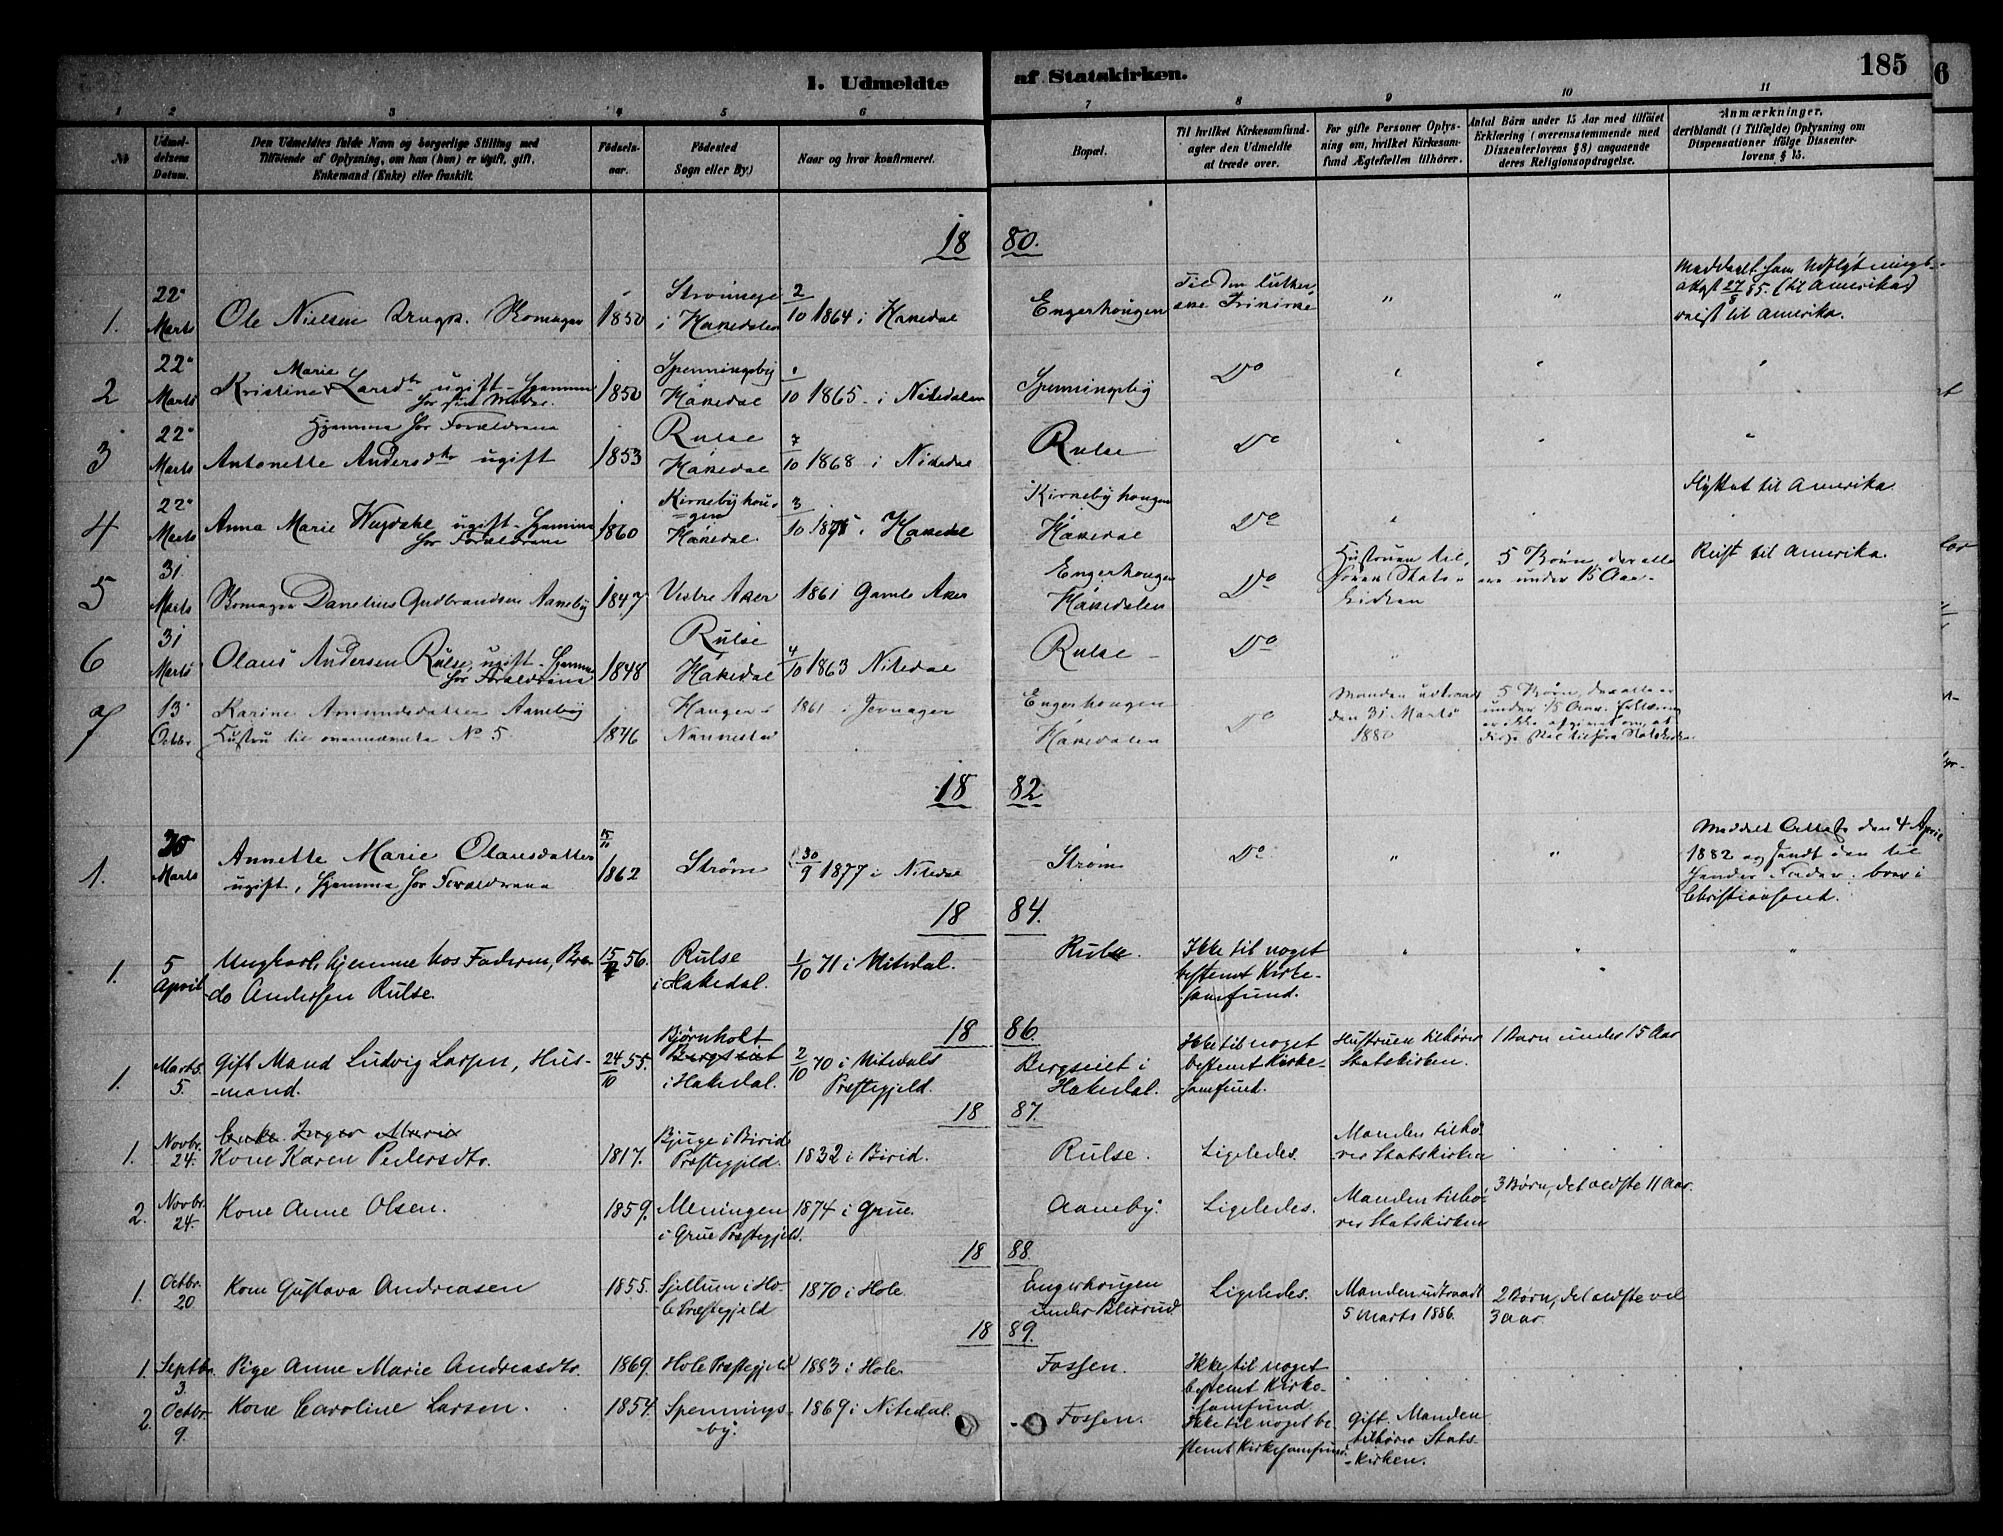 1. Udmeldte af Statskirken.
185
6
1 2 3 4 5 6 7 8 9 10 11
No
Udmel-
delsens
Datum.
Den Udmeldtes fulde Navn og borgerlige Stilling med
Tilføiende af Oplysning, om han (hun) er ugift, gift,
Enkemand (Enke) eller fraskilt.
Fødsels-
aar.
Fødested
Sogn eller By.)
Naar og hvor konfirmeret.
Bopæl.
Til hvilket Kirkesamfund
agter den Udmeldte
at træde over.
For gifte Personer Oplys-
ning om, hvilket Kirkesam-
fund Ægtefællen tilhører.
Antal Børn under 15 Aar med tilføiet
Erklæring (overensstemmende med
Dissenterlovens § 8) angaaende
deres Religionsopdragelse.
Anmærkninger,
deriblandt (i Tilfælde) Oplysning om
Dispensationer ifølge Dissenter-
lovens § 15.
1880.
1.
22
Marts
Ole Nielsen Skomager
1850
i Hakedalen
2/10 1864 i Hakedal
Engerhougen
Til den luther
ske Frikirke
"
"
27/8 85. (til Amerika)
reist til Amerika.
2
22
Marts
Marie
Kristine Larsdtr ugift - hjemme
for sin Moder.
1850
Spenningsby
Hakedal
10 1865 - i Nitedalen
Spenningsby
Do
3
22
Marts
Hjemme for Forældrene
Antonette Andersdtr ugift
1853
Rulse
Hakedal
7/10 1868 i Nitedal
Rulse
Do
4
22
Marts
Anna Marie ugift - hjemme
for Forældrene
1860
Kirnebyhou-
gen
Hakedal.
3/10 187 i Hakedal
Kirnebyhougen
Hakedal
Do
Flyttet til Amerika.
5
31.
Marts
Skomager Danelius Gudbrandsen Aaneby
1847
Vestre Aker
1861 Gamle Aker
Engerhougen
Hakedalen
Do
Hustruen til-
hører Stats-
kirken
5 Børn, der alle
ere under 15 Aar.
Reist til Amerika.
6
31
Marts
Olaus Andersen Rulse, ugift - hjemme
for Forældrene
1848
Rulse
Hakedal
4/10 1863 Nitedal
Rulse
Do
7
13
Octbr.
Karine Amundsdatter Aaneby
Hustru til ovennævnte No 5
1846
Hauger i
Nannestad
1861 i Jevnager
Engerhougen
Hakedalen
Do
Manden udtraadt
den 31 Marts
1880
5 Børn, der alle er
under 15 Aar. Erklæring
er ikke afgivet om, at
disse skal tilhøre Statskirken
1882
1.
30
Marts
Annette Marie Olausdatter
ugift, hjemme for Forældrene
15/11
1862
Strøm
30/9 1877 i Nitedal
Strøm
Do
"
"
Meddelt Attest den 4 April
1882 og sendt den til
hendes Fader
Christiansand.
1884.
1.
5
April
Ungkarl, hjemme hos Faderen,
-do Andersen Rulse.
56.
Rulse
i Hakedal.
1/10 71 i Nitedal.
Rulse.
Ikke til noget
bestemt Kirke-
samfund.
"
"
"
1886.
1.
Marts
5.
Gift Mand Ludvig Larsen, Hus-
-mand.
24/10 55.
Bjørnholt
Bergseiet
i Hakedal.
2/10 70 i Nitedals
Præstegjeld.
Bergseiet i
Hakedal.
Ikke til noget
bestemt Kirke-
samfund.
Hustruen tilhører
Statskirken.
1 Barn under 15 Aar
1887.
1.
Novbr.
24.
Enke Inger Marie
Kone Karen Pedersdtr.
1817.
Bjuge i Birids
Præstegjeld.
1832 i Birid.
Rulse.
Ligeledes.
Manden tilhø-
rer Statskirken
2.
Novbr.
24.
Kone Anne Olsen.
1859.
Meningen
i Grue Præstegjeld.
1874 i Grue.
Aaneby.
Ligeledes.
Manden tilhø-
rer Statskirken
3 Børn, det ældste 11 Aar.
1888.
1.
Octbr.
20.
Kone Gustava Andreasen
1855.
Sjellum i Ho-
le Præstegjeld
1870 i Hole
Engerhougen
under Blixrud
Ligeledes.
Manden udtraadt
5 Marts 1886.
2 Børn, det ældste vel
3 aar.
1889.
1.
Septbr.
3.
Pige Anne Marie Andreasdtr.
1869.
Hole Præstegjeld
1883 i Hole
Fossen.
Ikke til noget
bestemt Kirke-
samfund
2.
Octbr.
9.
Kone Caroline Larsen.
1854.
Spennings-
by.
1869 i Nitedal.
Fossen.
Ikke til noget be-
stemt Kirkesamfund.
Gift. Manden
tilhører Stats-
-kirken.